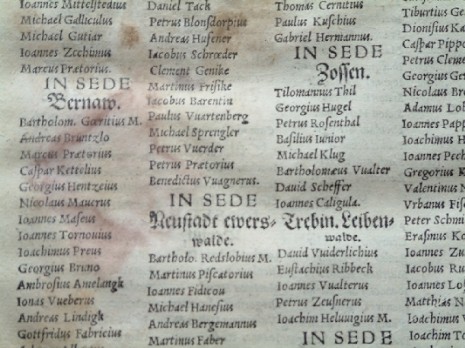 Ioannes Mittelstedius
Michael Galliculus
Michael Gutiar
Ioannes Zechinus
Marcus Prætorius.
IN SEDE
Bernaw.
Bartholom. Gœritius M.
Andreas Bruntzlo
Marcus Prætorius
Caſpar Kettelius
Georgius Hentzcius
Nicolaus Maurerus
Ioannes Maſeus
Ioannes Tornouius
Ioachimus Preus
Georgius Bruno
Ambroſius Amelangk
Ionas Vueberus
Andreas Lindigk
Gottfridus Fabricius
Daniel Tack
Petrus Blonſdorpius
Andreas Hufener
Iacobus Schrœder
Clement Genike
Martinus Friſike
Iacobus Barentin
Paulus Vuartenberg
Michael Sprengler
Petrus Vuerder
Petrus Prætorius
Benedictus Vuagnerus.
IN SEDE
Neuſtadt ewers-
walde.
Bartholo. Redslobius M.
Martinus Piſcatorius
Ioannes Fidicou
Michael Haneſius
Andreas Bergemannus
Martinus Faber
Thomas Cernitius
Paulus Kuſchius
Gabriel Hermannus.
IN SEDE
Zoſſen.
Tilomannus Thil
Georgius Hugel
Petrus Roſenthal
Baſilius Iunior
Michael Klug
Bartholomæus Vualter
Dauid Scheffer
Ioannes Caligula.
Trebin. Leiben-
walde.
Dauid Vuiderlichius
Euſtachius Ribbeck
Ioannes Vualterus
Petrus Zeuſnerus
Ioachim Heluuigius M.
IN SEDE
Tiburtius Ge
Dionyſius Ka
Caſpar Pippe
Petrus Cleme
Georgius Ge
Nicolaus Bre
Adamus Lob
Ioannes Papp
Ioachimus H
Ioannes Pech
Gregorius K
Valentinus N
Vrbanus Fiſ
Peter Schmi
Eraſmus Ko
Ioannes Zu
Iacobus Ru
Ioannes Li
Matthias N
Ioannes Lo
Ioachim T